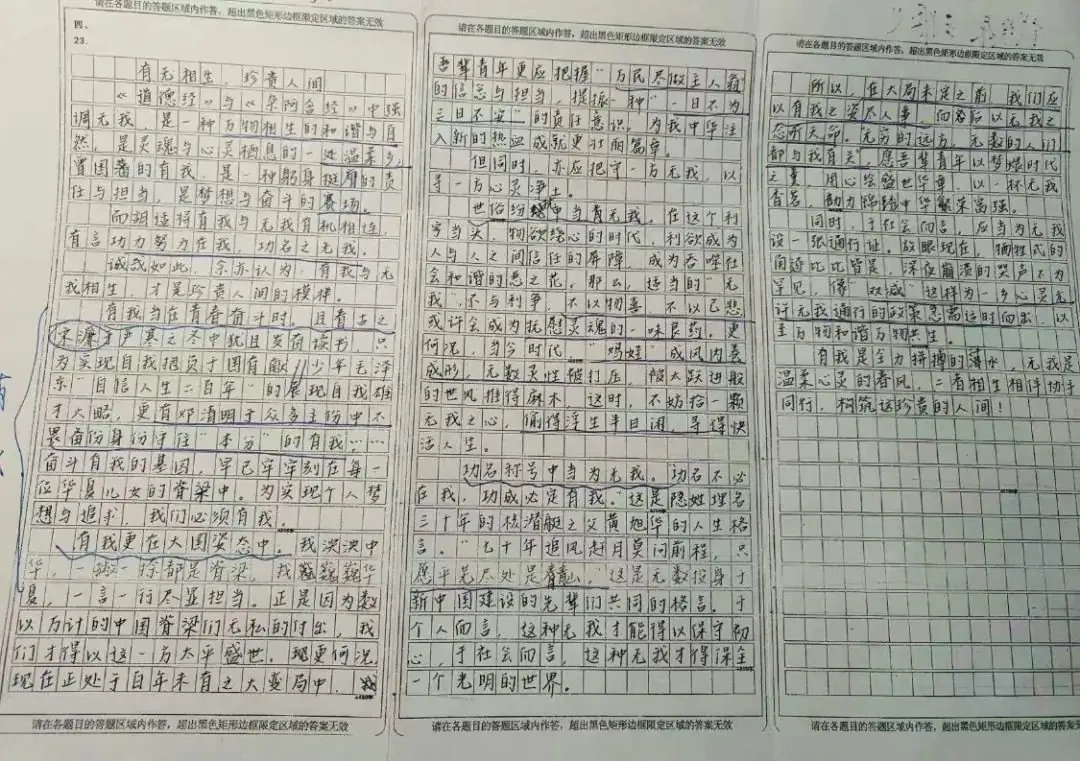 请在各题目的答题区域内作答，超出黑色矩形边框限定区域的答案无效
四、
23.
有无相生，珍贵人间
《道德经》与《奥阿含经》中强
调无我，是一种万物相生的和谐与自
然，是灵魂与心灵栖息的一处温柔乡，
曾国藩的有我，是一种躬身挺膺的责
任与担当，是梦想与奋斗的赛场。
而胡适将有我与无我有机相连，
有言功力努力在我，功名之无我。
诚哉如此，余亦认为：有我与无
我相生，才是珍贵人间的模样。
有我当在青春奋斗时，且看古之
宋濂于严寒之冬中犹且负荷读书，只
为实现自我抱负于国有献，少年毛泽
东“自信人生二百年”的展现自我雄
才大略，更有邓清明于众多主份中不
畏备份身份守住“本分”的有我……
奋斗有我的基因，早已牢牢刻在每一
位华夏儿女的脊梁中。为实现个人梦
想与追求，我们必须有我。
有我更在大国姿态中。我泱泱中
华，一撇一捺都是脊梁，我巍巍华
夏，一言一行尽显担当。正是因为数
以万计的中国脊梁们无私的付出，我
们才得以这一方太平盛世。更何况，
现在正处于百年未有之大变局中，我
请在各题目的答题区域内作答，超出黑色矩形边框限定区域的答案无效
请在各题目的答题区域内作答，超出黑色矩形边框限定区域的答案无效
吾辈青年更应把握“万民尽做主人翁”
的信念与担当，提振一种“一日不为，
三日不安”的责任意识，为我中华注
入新的热血成就更壮丽篇章。
但同时，亦应把守一方无我，以
寻一方心灵净土。
世俗纷中当有无我。在这个利
字当头，物欲绕心的时代，利欲成为
人与人之间信任的屏障，成为吞噬社
会和谐的恶之花。那么，适当的“无
我”，不与利争，不以物喜，不以己悲
或许会成为抚慰灵魂的一味良药。更
何况，当今时代，“鸡娃”成风内卷
成形，无数灵性被打压，被大跃进般
的世风推得麻木，这时，不妨拾一颗
无我之心，偷得浮生半日闲，寻得快
活人生。
功名称号中当为无我。功名不必
在我，功成必定有我。“这是隐姓埋名
三十年的核潜艇之父黄旭华的人生格
言。“七十年追风赶月莫问前程，只
愿平芜尽处是青山，”这是无数投身于
新中国建设的先辈们共同的格言。于
个人而言，这种无我才能得以保守初
心，于社会而言，这种无我才得保全
一个光明的世界。
请在各题目的答题区域内作答，超出黑色矩形边框限定区域的答案无效
请在各题目的答题区域内作答，超出黑色矩形边框限定区域的答案无效
所以，在大局未定之前，我们应
以有我之姿尽人事，而客后以无我之
念听天命。“无穷的远方，无数的人们
都与我有关”，愿吾辈青年以梦烛时代
之夏，用心绘盛世华章，以一杯无我
香茗，助力锦绣中华繁荣富强。
同时，于社会而言，应当为无我
设一张通行证。放眼现在，牺牲式的
角逐比比皆是，深夜崩溃的哭声不为
罕见，像“双减”这样为一乡心灵无
许无我通行的政策急需适时而出，以
至万物和谐万物共生。
有我是全力拼搏的薄冰，无我是
温柔心灵的春风，二者相生相伴协手
同行，构筑这珍贵的人间！
请在各题目的答题区域内作答，超出黑色矩形边框限定区域的答案无效